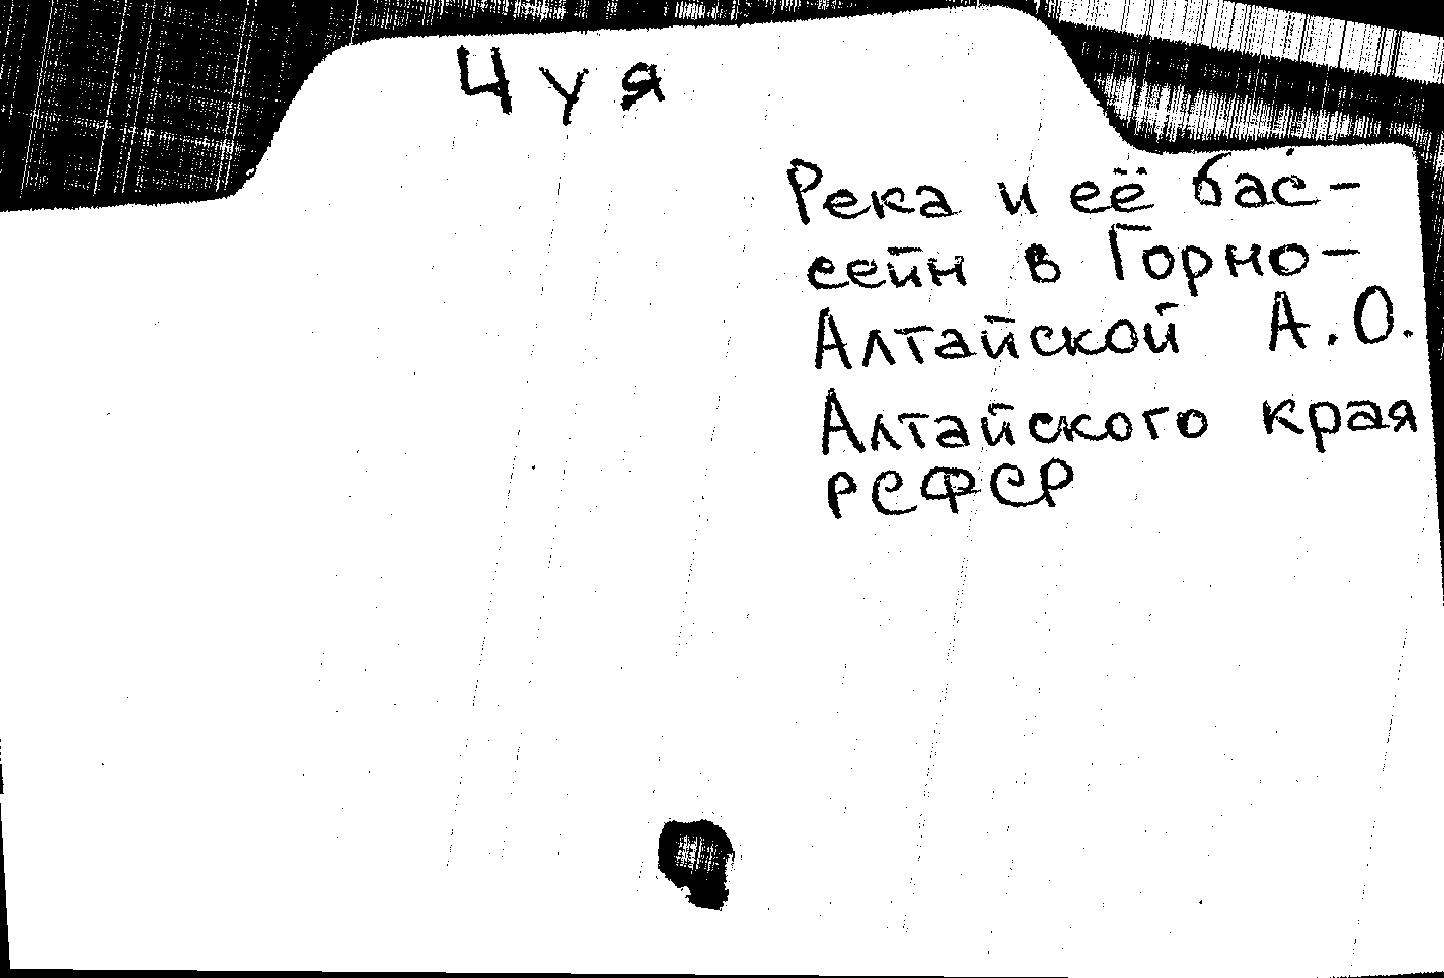 Чуя
Река и её бас-
сейн в Горно-
Алтайской А.О.
Алтайского края
РСФСР